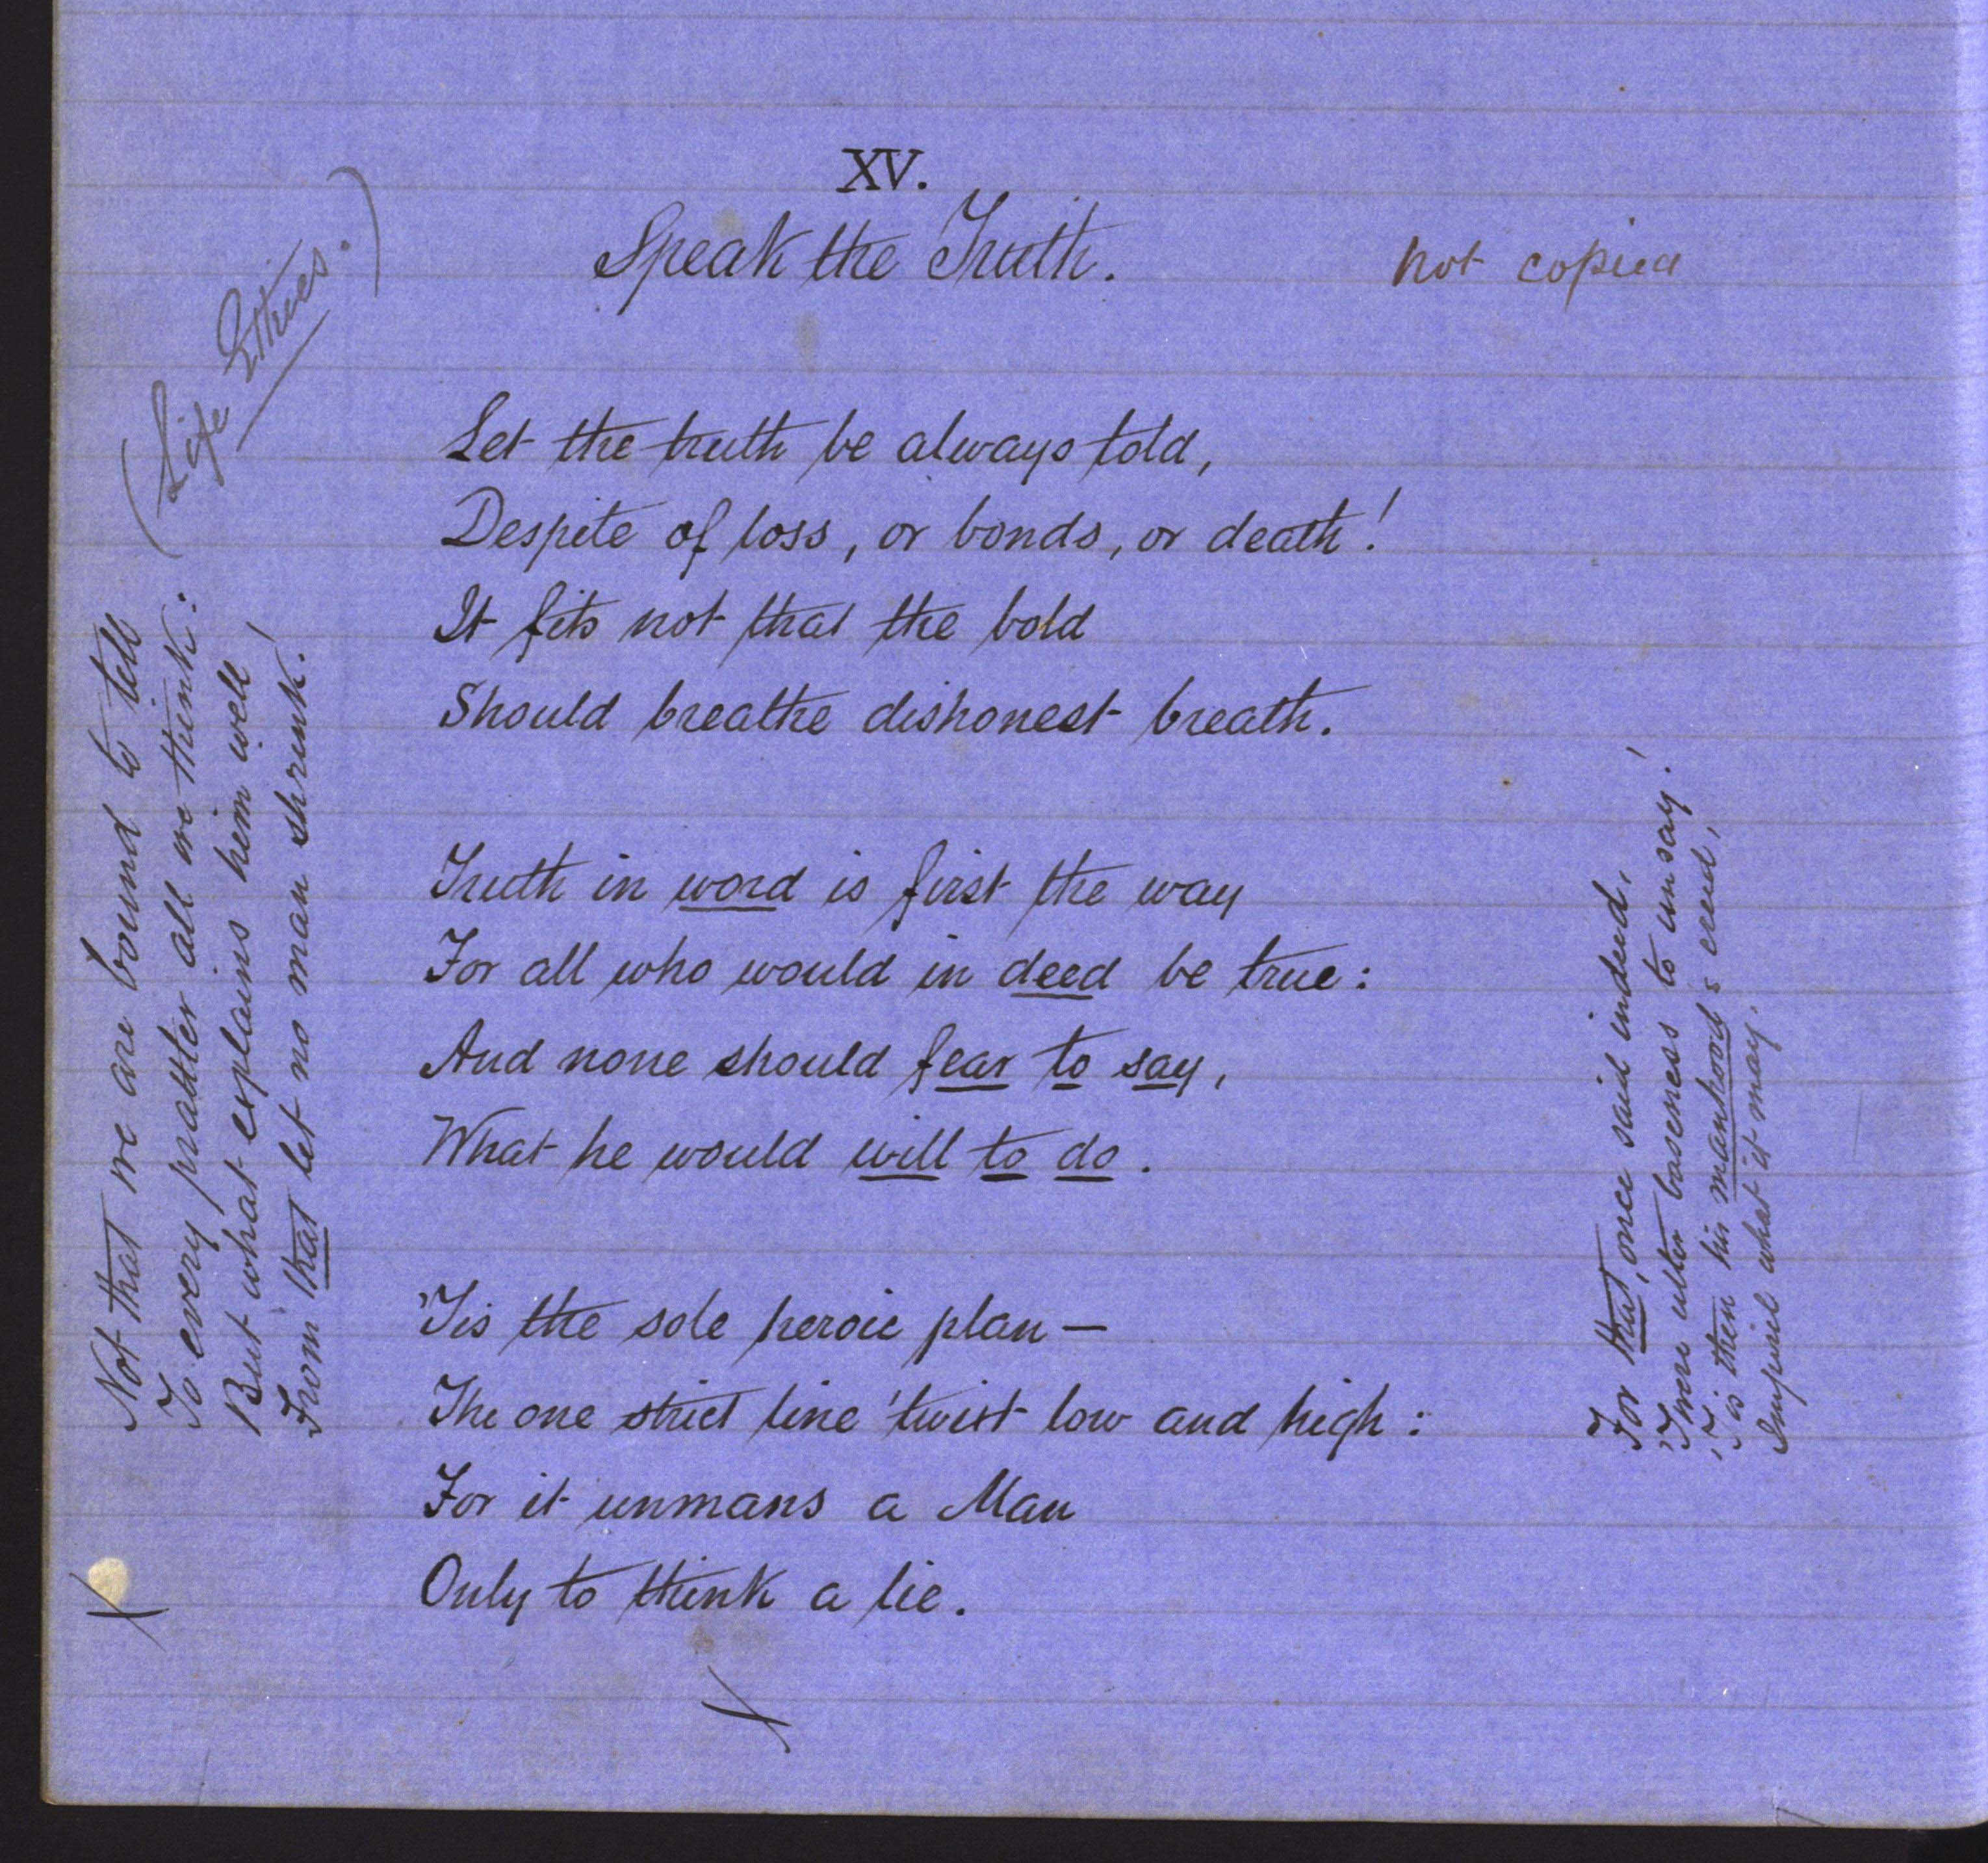 XV.
Speak the Truth.
not copied
(Life Ethics.)
Let the truth be always told,
Despite of loss, or bonds, or death!
It fits not that the bold
Should breathe dishonest breath.
Truth in word is first the way
For all who would in deed be true:
And none should fear to say,
What he would will to do.
'Tis the sole heroic plan—
The one strict line 'twixt low and high:
For it unmans a Man
Only to think a lie.
X
X
Not that we are bound to tell
To every pratter all we think:
But what explains him well
From that let no man shrink!
For that, once said indeed,
'Twere utter baseness to unsay!
'Tis then his manhood's creed,
Imperil what it may.